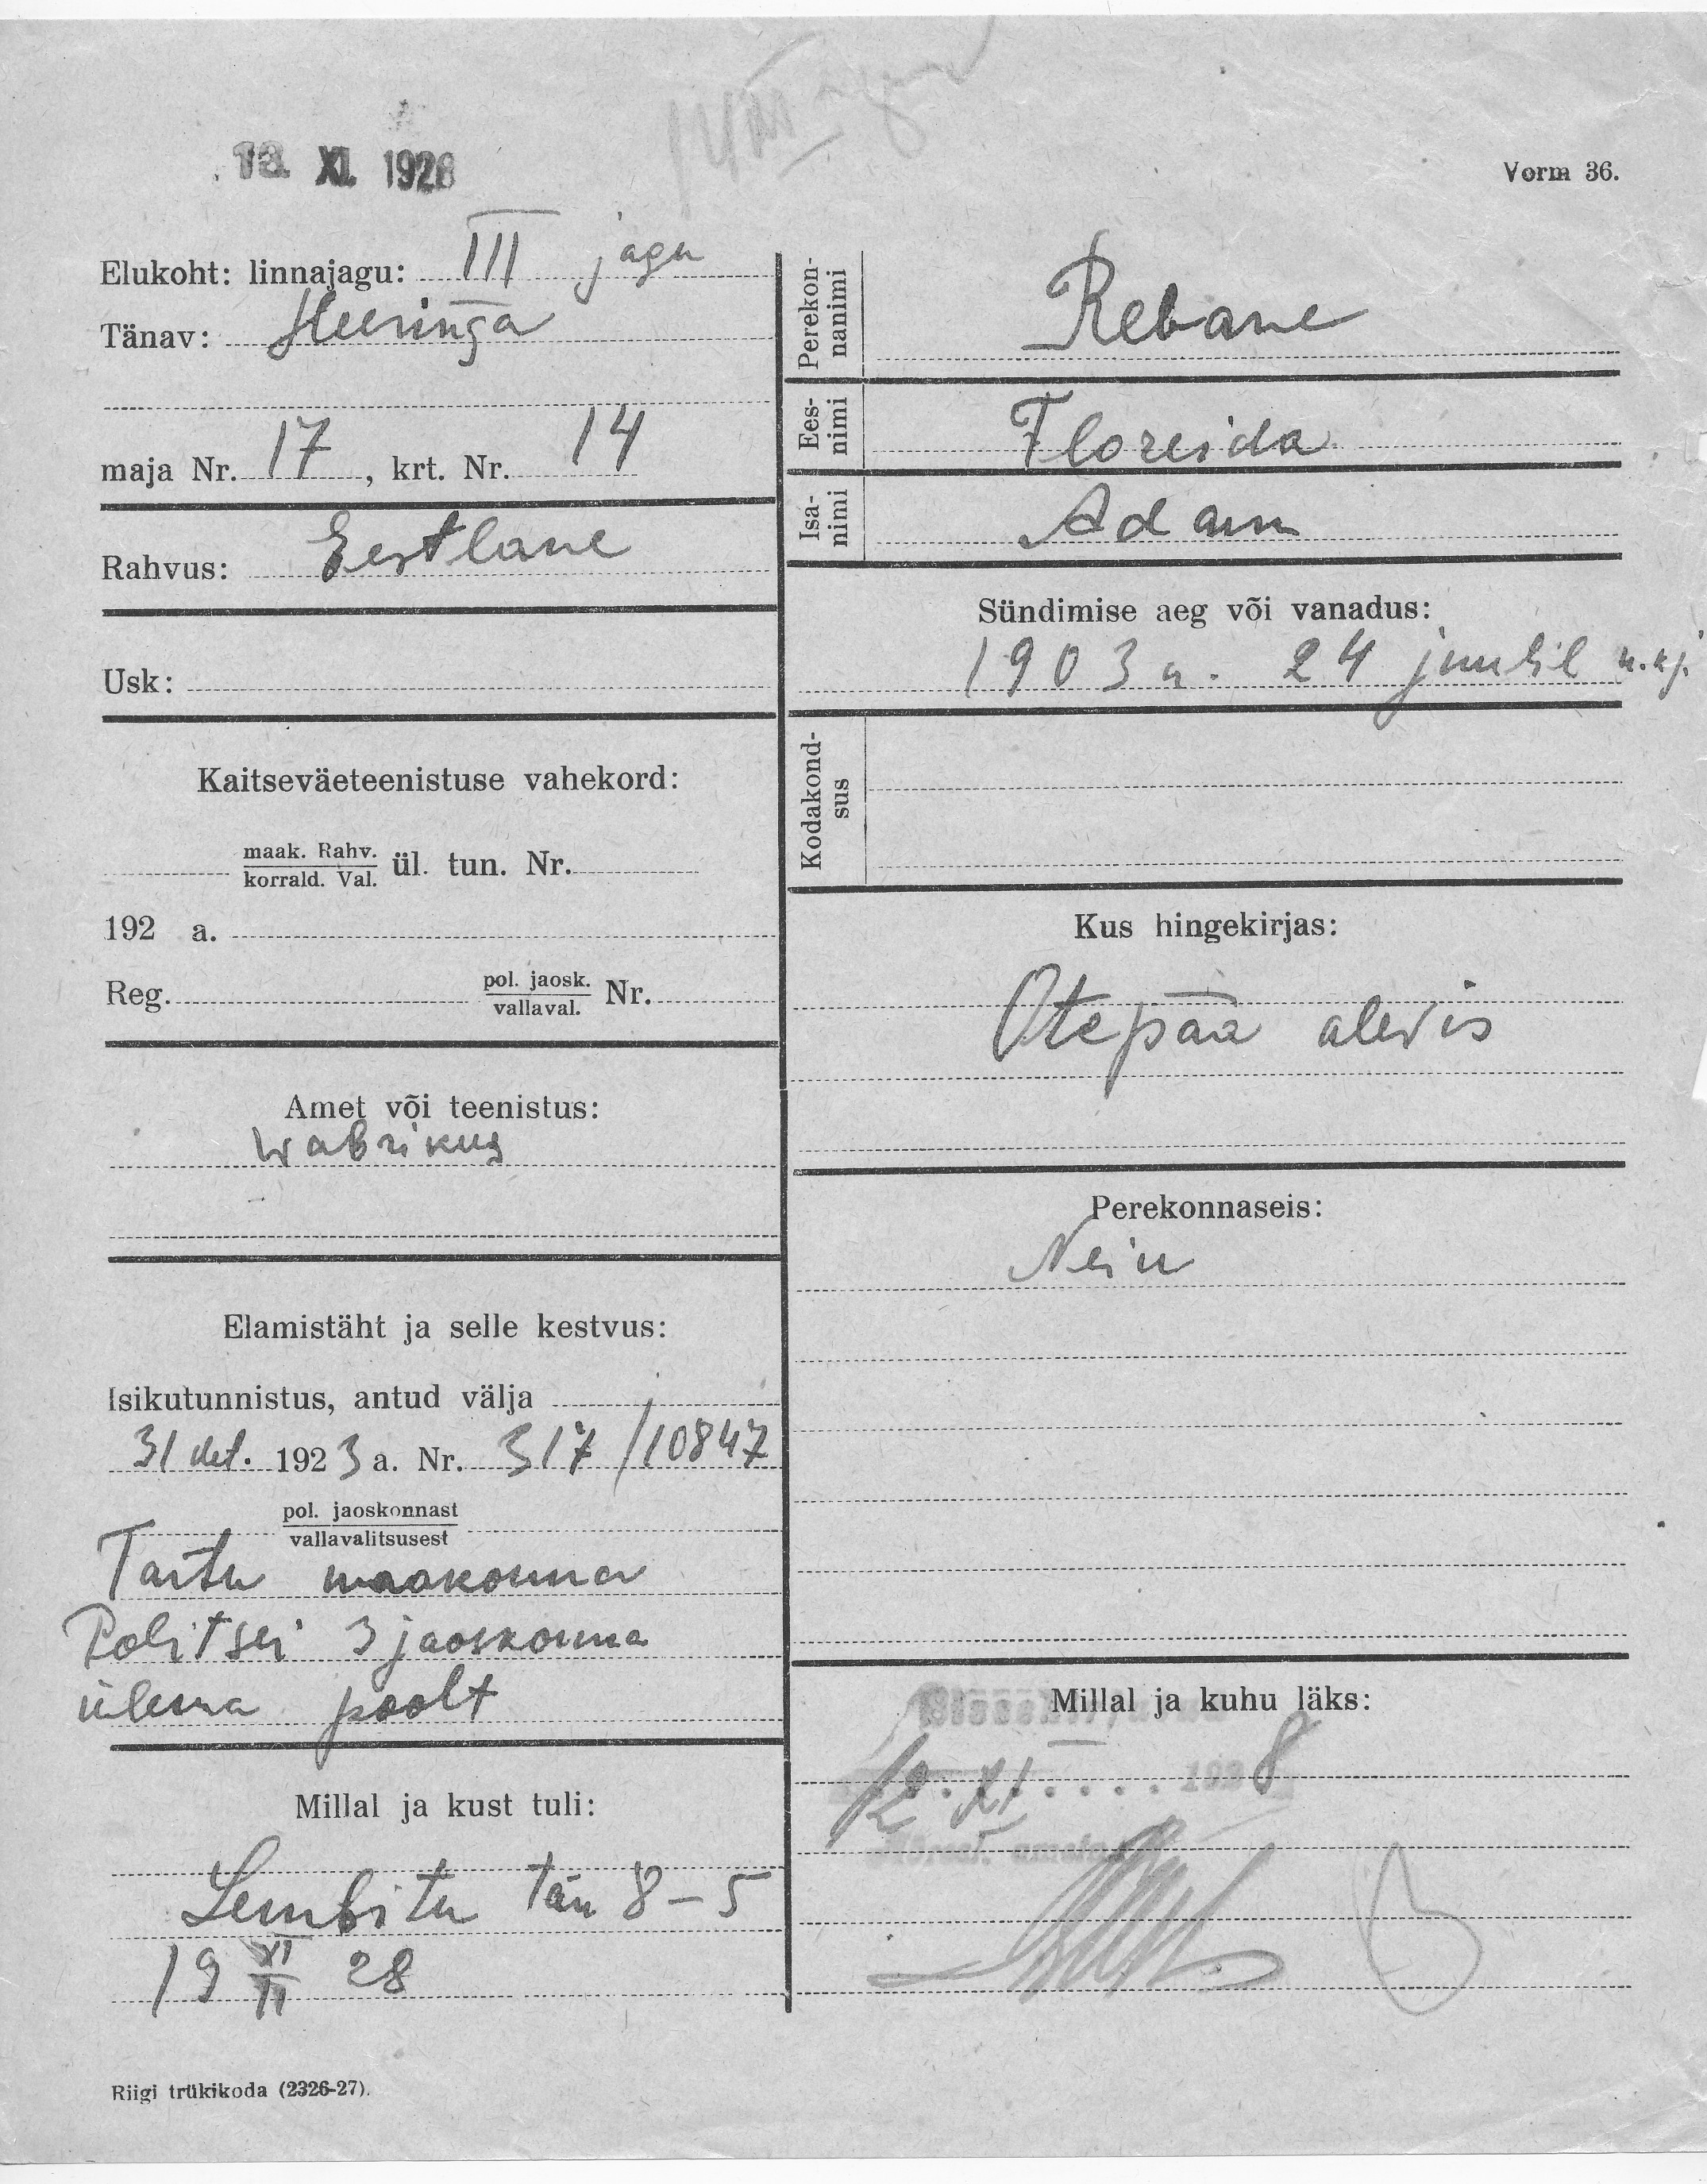 13. XI. 1928
Vorm 36.
Elukoht: linnajagu: III jagu
Tänav: Heeringa
maja Nr. 17, krt. Nr. 14
Rahvus: Eestlane
Usk:
Kaitseväeteenistuse vahekord:
maak. Rahv.
korrald. Val. ül. tun. Nr.
192 a.
Reg. pol. jaosk. Nr.
vallaval.
Amet või teenistus:
Wabrikus
Elamistäht ja selle kestvus:
Isikutunnistus, antud välja
31 det. 1923 a. Nr. 317/10847
pol. jaoskonnast
vallavalitsusest
Tartu maakonna
Politsei 3 jaoskonna
ülema poolt
Millal ja kust tuli:
Lembitu tän 8-5
19 XI 28
Riigi trükikoda (2326-27).
Perekon-
nanimi
Rebane
Ees-
nimi
Floreida
Isa-
nimi
Adam
Sündimise aeg või vanadus:
1903 a. 24 juulil u.kj.
Kodakond-
sus
Kus hingekirjas:
Otepää alevis
Perekonnaseis:
Neiu
Millal ja kuhu läks:
XI 1928